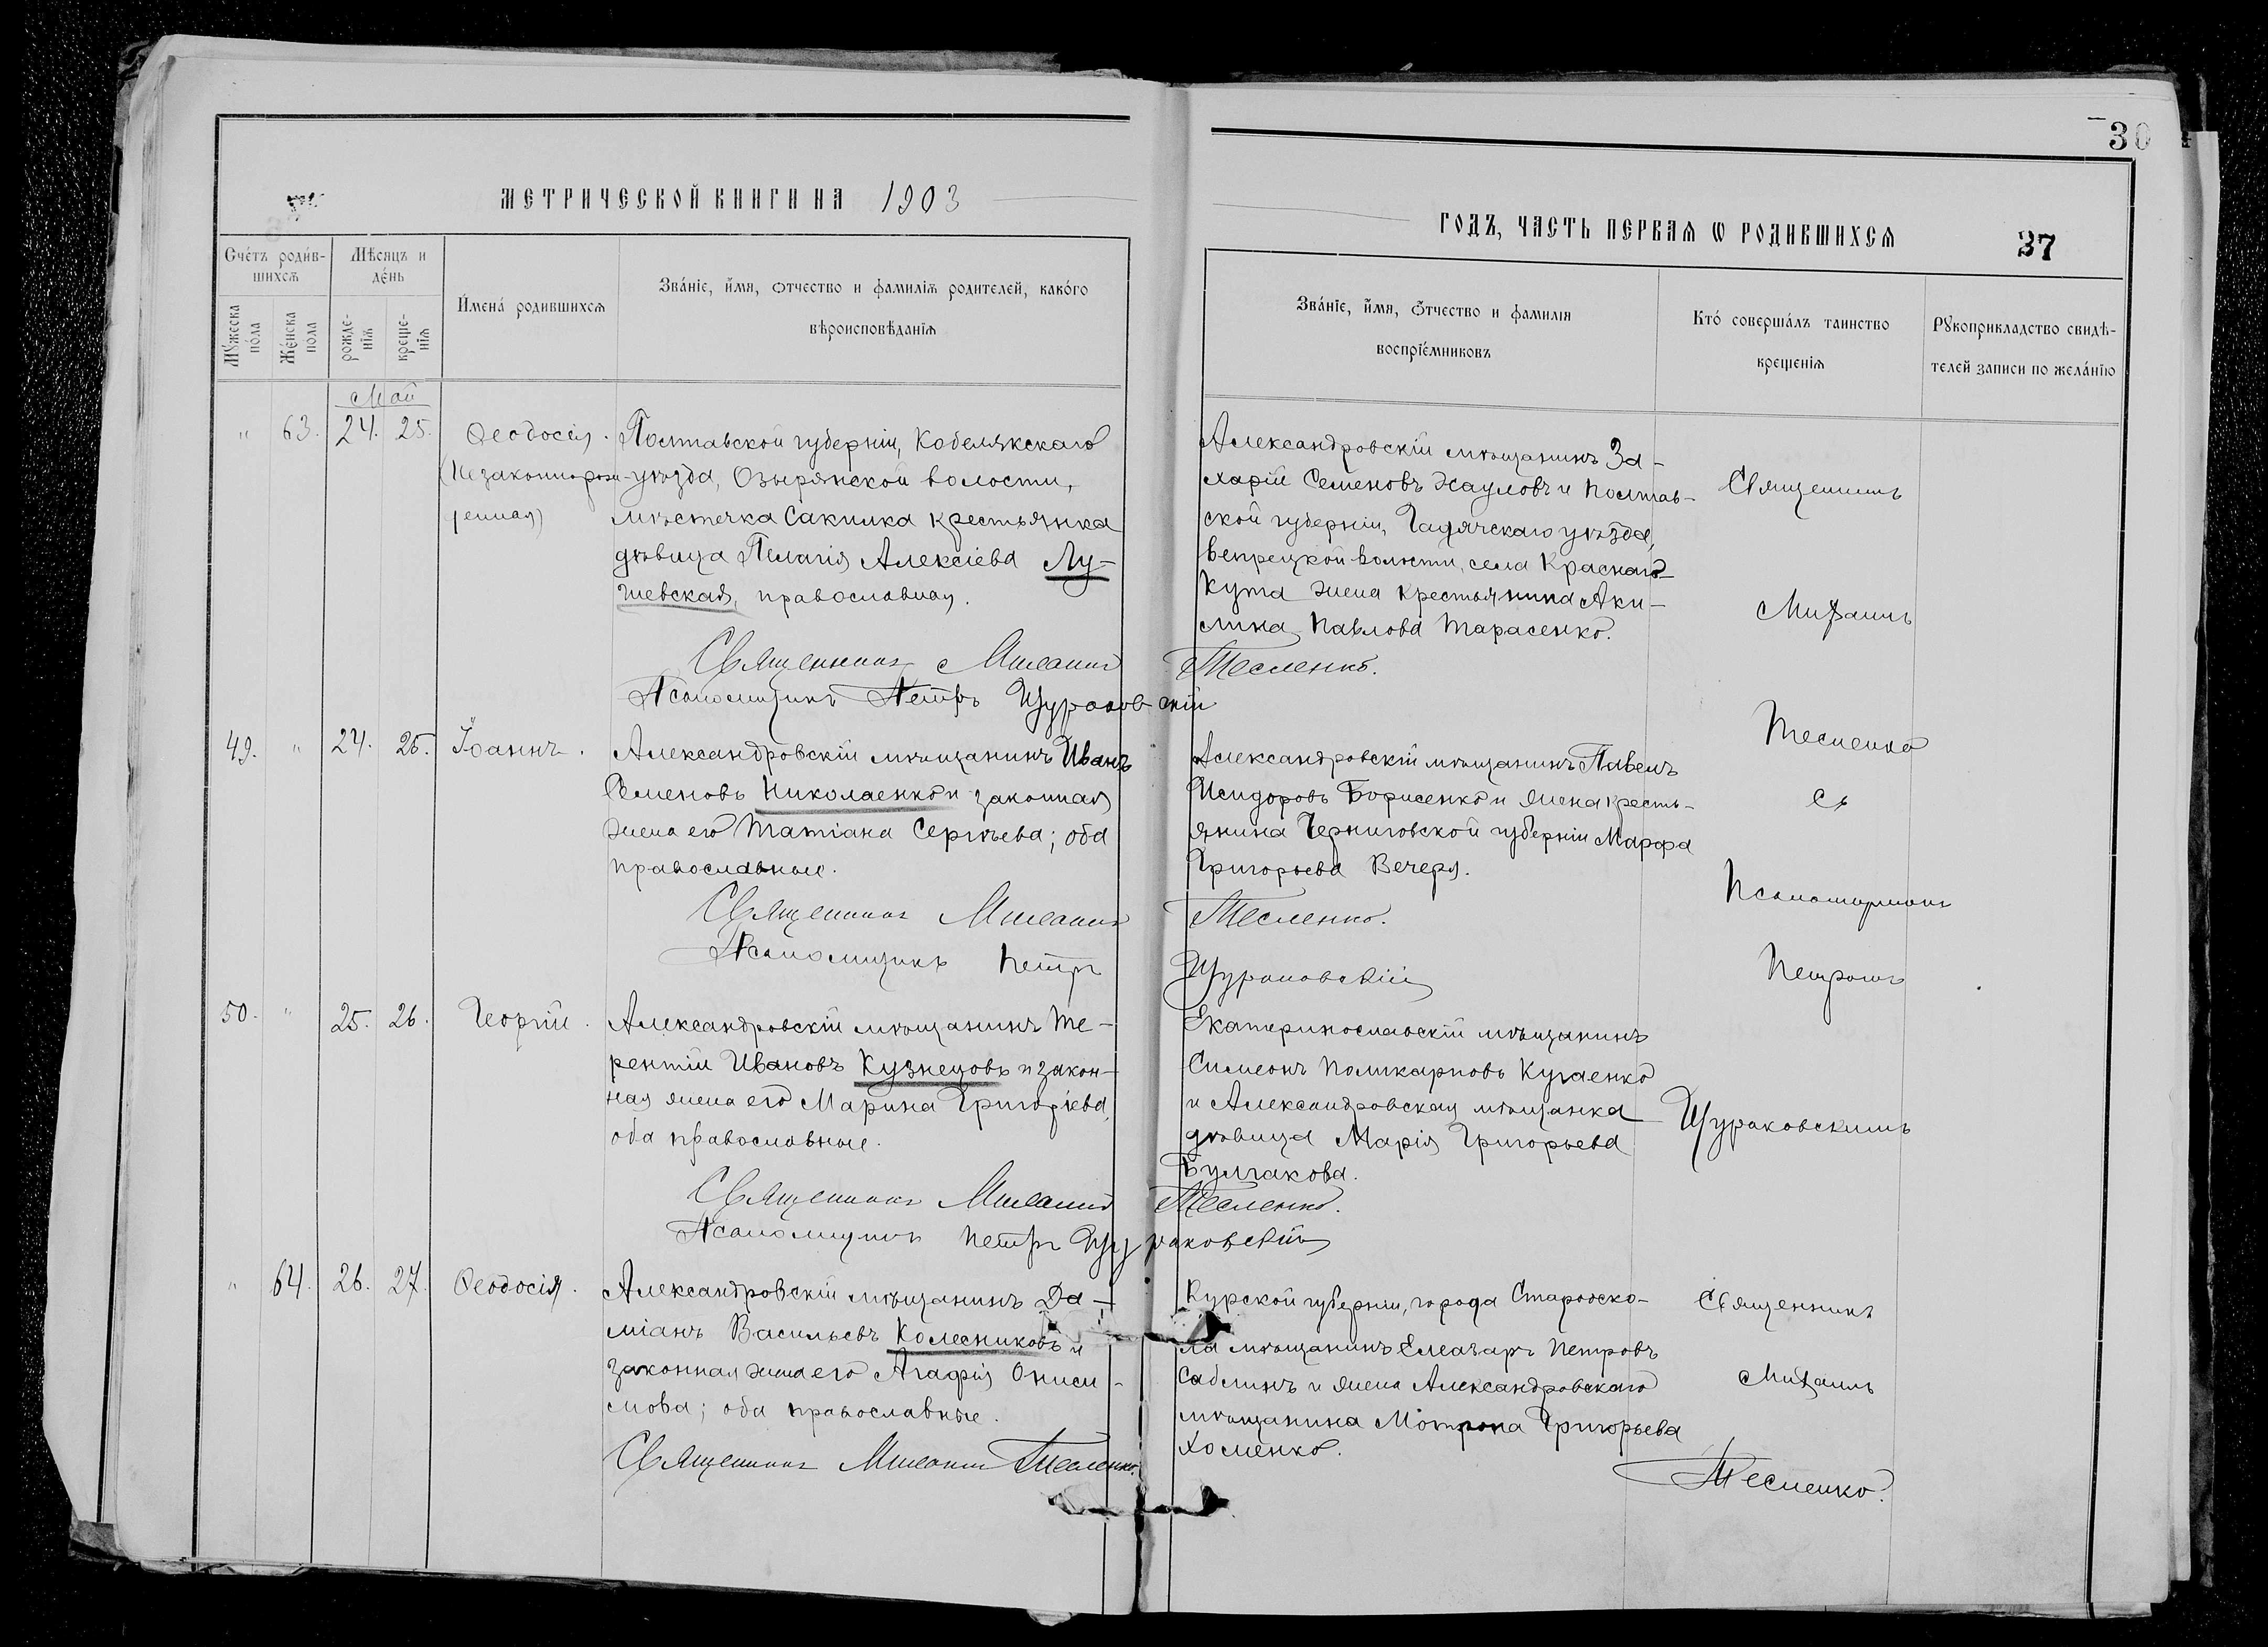 30
МЕТРИЧЕСКОЙ КНИГИ НА 1903
ГОДЪ, ЧАСТЬ ПЕРВАЯ Ѡ РОДИВШИХСЯ
37
Счётъ роди́в-
шихсѧ
Мѣсяцъ и
де́нь
Мꙋ́жеска
по́ла
Же́нска
по́ла
рожде-
нїѧ
креще-
нїѧ
И́мена́ родившихсѧ
Зва́нїе, и́мя, ѻтчество и фамилїѧ родителей, како́го
вѣроисповѣданїѧ
Зва́нїе, и́мя, ѻ́тчество и фамилїѧ
воспрїе́мниковъ
Кто́ соверша́лъ таинство
крещенїѧ
Рꙋкоприкладство свидѣ-
телей записи по жела́нїю
Май
" 63. 24. 25. Ѳеодосія.
(Незаконнорож-
денная)
Полтавской губерніи, Кобелякскаго
уѣзда, Озырянской волости,
мѣстечка Сакинка крестьянка
дѣвица Пелагія Алексіева Лу-
чевская, православная.
Александровскій мѣщанинъ За-
харій Семеновъ Хауловъ и Полтав-
ской губерніи, Гадячскаго уѣзда,
Вепрецкой волости, села Краснаго
Кута жена крестьянина Аки-
лина Павлова Тарасенко.
Священникъ Михаилъ Тесленко.
Псаломщикъ Петръ Щураковскій
49. " 24. 25. Іоаннъ.
Александровскій мѣщанинъ Иванъ
Семеновъ Николаенко и законная
жена его Татіана Сергѣева; оба
православные.
Александровскій мѣщанинъ Павелъ
Исидоровъ Борисенко и жена кресть-
янина Черниговской губерніи Марфа
Григорьева Вечеря.
Священникъ Михаилъ Тесленко.
Псаломщикъ Петръ Щураковскій
50. " 25. 26. Георгій.
Александровскій мѣщанинъ Те-
рентій Ивановъ Кузнецовъ и закон-
ная жена его Марина Григоріева,
оба православные.
Екатеринославскій мѣщанинъ
Симеонъ Поликарповъ Кугаенко
и Александровская мѣщанка
дѣвица Марія Григорьева
Булгакова.
Священникъ Михаилъ Тесленко.
Псаломщикъ Петръ Щураковскій
Священникъ
Михаилъ
Тесленко
съ
Псаломщикомъ
Петромъ
Щураковскимъ
" 64. 26. 27. Ѳеодосія.
Александровскій мѣщанинъ Да-
міанъ Васильевъ Колесниковъ и
законная жена его Агафія Ониси-
мова; оба православные.
Курской губерніи, города Староско-
ла мѣщанинъ Елеазаръ Петровъ
Саблинъ и жена Александровскаго
мѣщанина Мотрона Григорьева
Хоменко.
Священникъ Михаилъ Тесленко.
Священникъ
Михаилъ
Тесленко.